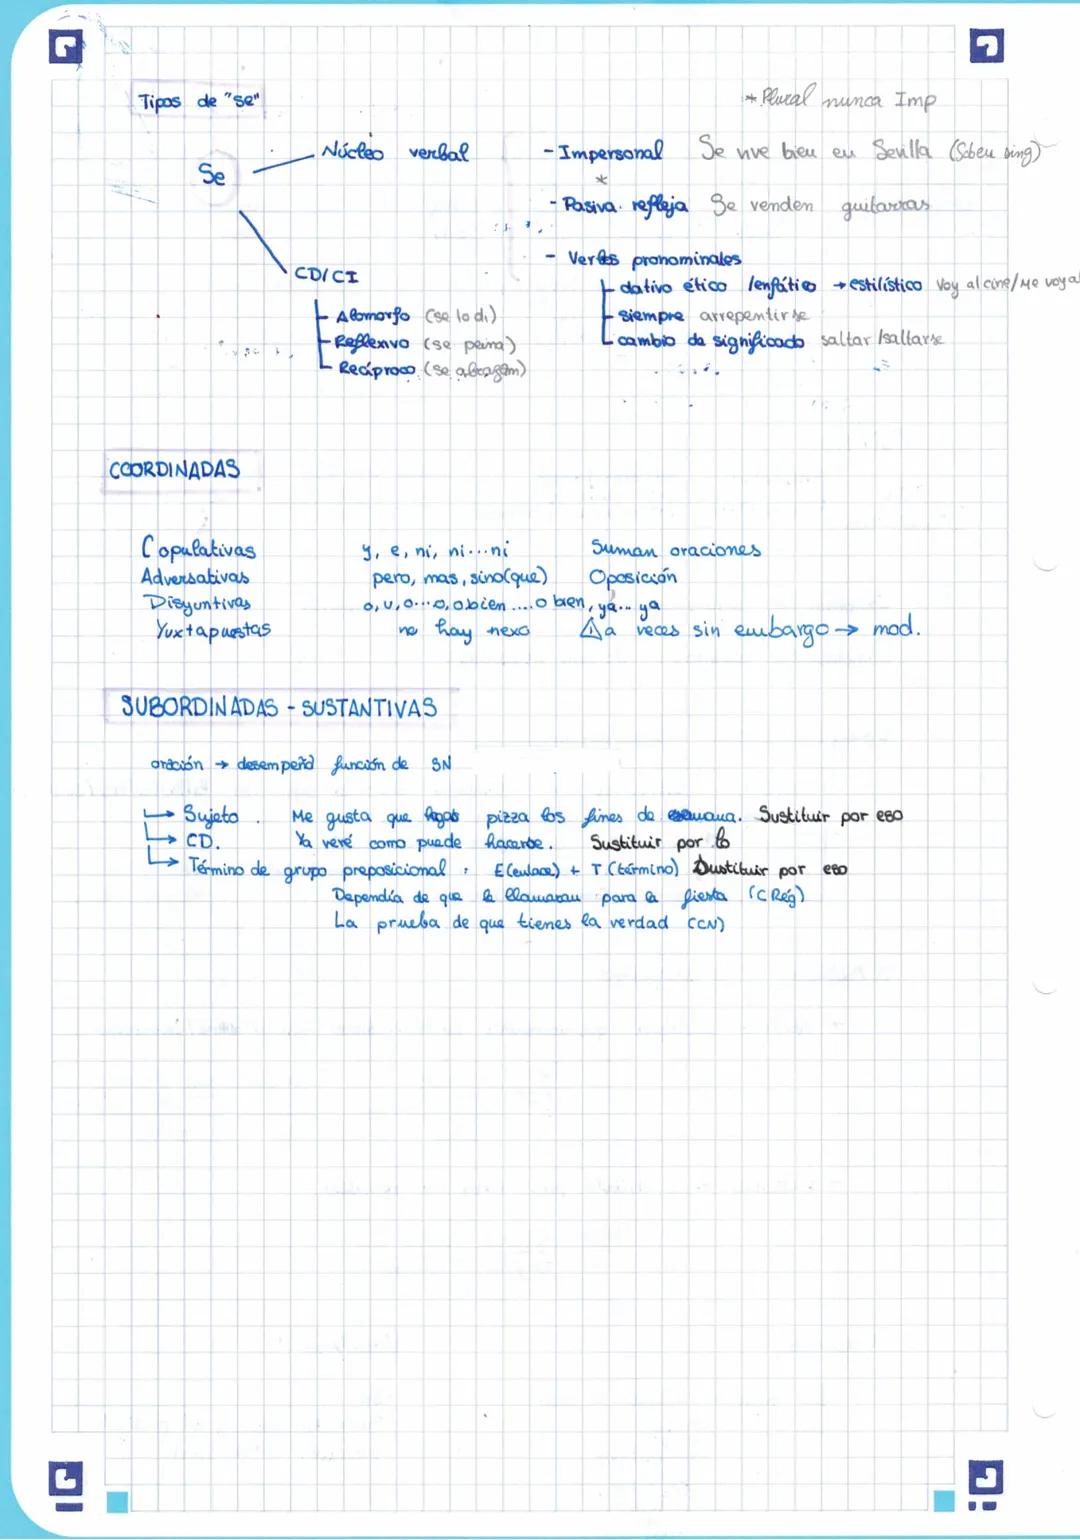 Tipos de "se"
* Plural nunca Imp
Se
Núcleo verbal
- Impersonal Se vive bien en Sevilla (Sobeu sing)
*
- Pasiva refleja Se venden guitarras
- Verbos pronominales
dativo ético /enfático → estilístico Voy al cine/Me voy al
siempre arrepentirse
cambio de significado saltar /saltarse
CD/CI
Alomorfo (se lo di)
Reflexivo (se peina)
Recíproco (se abrazan)
COORDINADAS
Copulativas y, e, ni, ni...ni Suman oraciones
Adversativas pero, mas, sino(que) Oposición
Disyuntivas o, u, o...o, o bien ....o bien, ya... ya
Yuxtapuestas no hay nexo ⚠ a veces sin embargo → mod.
SUBORDINADAS - SUSTANTIVAS
oración → desempeña función de SN
→ Sujeto. Me gusta que hagas pizza los fines de semana. Sustituir por eso
→ CD. Ya veré como puede hacerse. Sustituir por lo
→ Término de grupo preposicional: E(enlace) + T (término) Dustituir por eso
Dependía de que la llamaran para la fiesta (C Rég)
La prueba de que tienes la verdad (CN)